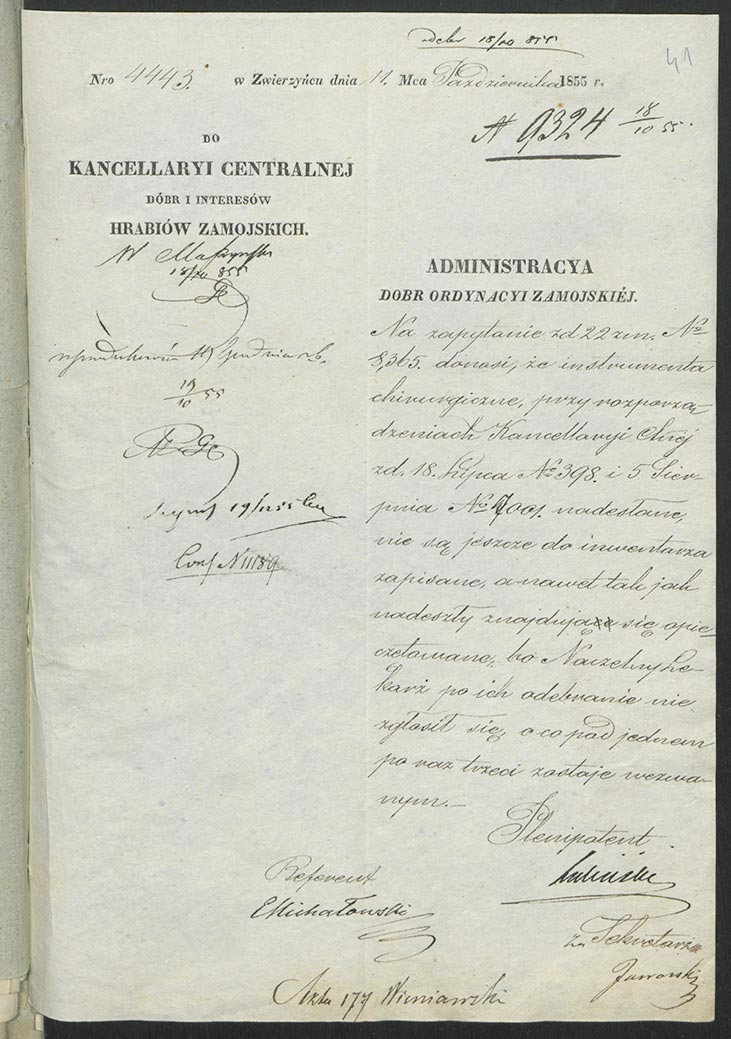 odebr 18/10 855
41
Nro 4443. w Zwierzyńcu dnia 11. Mca Października 1855 r.
N 9324 18/10 55.
DO
KANCELLARYI CENTRALNEJ
DÓBR I INTERESÓW
HRABIÓW ZAMOJSKICH.
W
18/10 855
19 Grudnia r.b.
19/10 55
19/1255
N 11189
ADMINISTRACYA
DOBR ORDYNACYI ZAMOJSKIÉJ.
Na zapytanie zd 22 zm. No
8,365. donosi, że instrumenta
chirurgiczne, przy rozporzą-
dzeniach Kancellaryi Ctnéj
zd. 18. Lipca No 398. i 5 Sier-
pnia No 7001. nadesłane,
nie są jeszcze do inwentarza
zapisane, a nawet tak jak
nadeszły znajdują się opie-
czętowane, bo Naczelny Le-
karz po ich odebranie nie
zgłosił się, o co pod jednem
po raz trzeci zostaje wezwa-
nym.—
Plenipotent
Lubiński
Referent
EMichałowski
za Sekretarza
Jaworski
Akta 177 Wieniawski